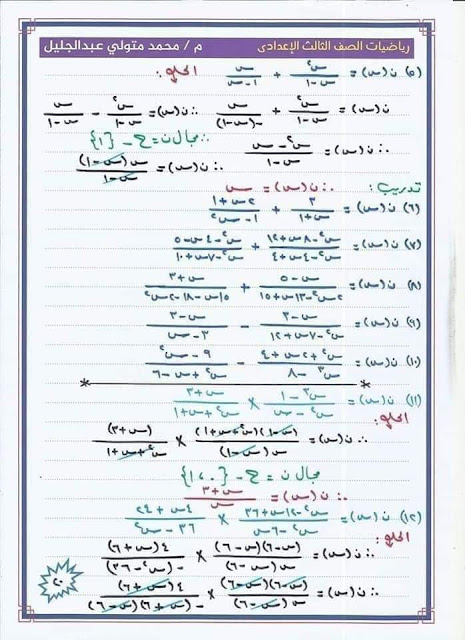 رياضيات الصف الثالث الإعدادى م / محمد متولي عبدالجليل
(٥) ن(س) = س²/(س-١) + س/(١-س) الحل:
ن(س) = س²/(س-١) + س/-(س-١) ∴ ن(س) = س²/(س-١) - س/(س-١)
∴ ن(س) = (س²-س)/(س-١) ∴ مجال ن = ح - {١}
∴ ن(س) = س(س-١)/(س-١)
∴ ن(س) = س تدريب:
(٦) ن(س) = ٣/(س+١) + (٢س+١)/(١-س²)
(٧) ن(س) = (س²-٨س+١٢)/(س²-٤س+٤) + (س²-٤س-٥)/(س²-٧س+١٠)
(٨) ن(س) = (س-٥)/(٢س²-١٣س+١٥) + (س+٣)/(١٥س-١٨-٢س²)
(٩) ن(س) = (س-٣)/(س²-٧س+١٢) - (س-٣)/(٣-س)
(١٠) ن(س) = (س²+٢س+٤)/(س³-٨) - (٩-س²)/(س²+س-٦)
(١١) ن(س) = (س³-١)/(س²-س) × (س+٣)/(س²+س+١)
الحل:
∴ ن(س) = (س-١)(س²+س+١)/س(س-١) × (س+٣)/(س²+س+١)
مجال ن = ح - {٠،١}
∴ ن(س) = (س+٣)/س
(١٢) ن(س) = (س²-١٢س+٣٦)/(س²-٦س) × (٤س+٢٤)/(٣٦-س²)
الحل:
∴ ن(س) = (س-٦)(س-٦)/س(س-٦) × ٤(س+٦)/-(س²-٣٦)
∴ ن(س) = (س-٦)(س-٦)/س(س-٦) × ٤(س+٦)/-(س+٦)(س-٦)